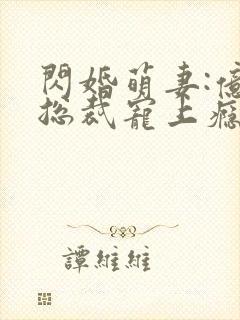 閃婚萌妻:億
總裁寵上癮
譚維維